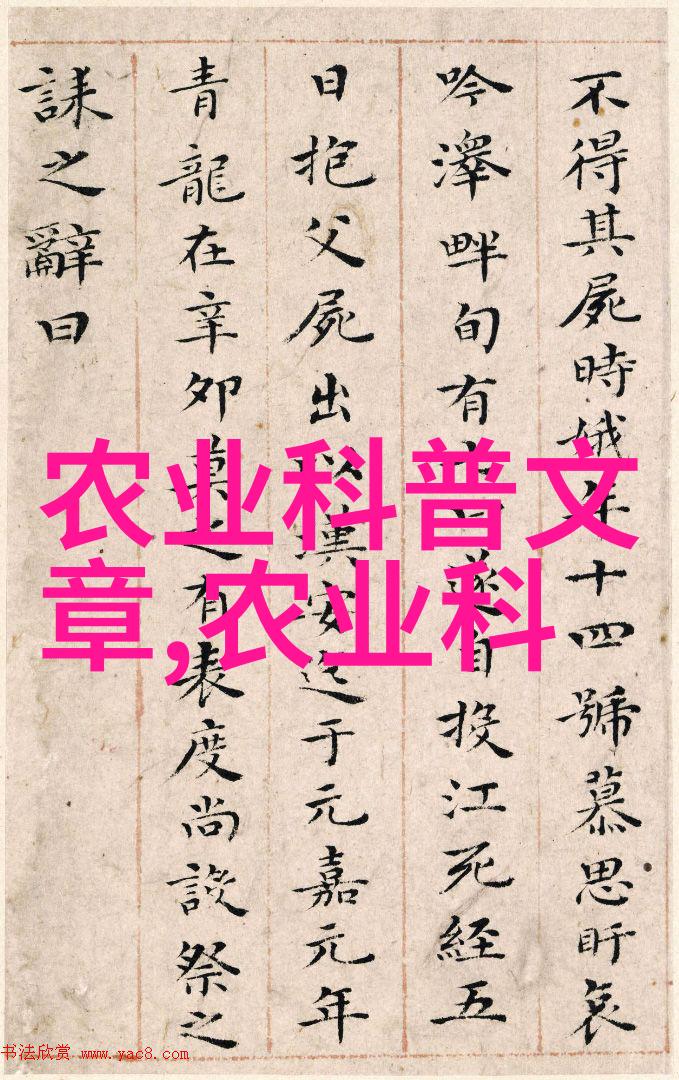 不得其屍時娥年十四號慕思盱哀
吟澤畔旬有遂自投江死經五
日抱父屍出以漢安迄于元嘉元年
青龍在辛卯莫之有表度尚設祭之
誄之辭曰
农业科普文
章,农业科
书法欣赏 www.yac8.com